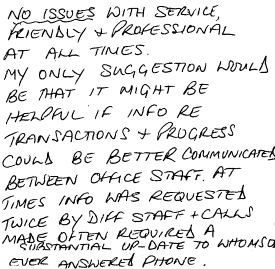 NO ISSUES WITH SERVICE,
FRIENDLY + PROFESSIONAL
AT ALL TIMES.
MY ONLY SUGGESTION WOULD
BE THAT IT MIGHT BE
HELPFUL IF INFO RE
TRANSACTIONS + PROGRESS
COULD BE BETTER COMMUNICATED
BETWEEN OFFICE STAFF. AT
TIMES INFO WAS REQUESTED
TWICE BY DIFF STAFF + CALLS
MADE OFTEN REQUIRED A
SUBSTANTIAL UP-DATE TO WHOMSO
EVER ANSWERED PHONE.